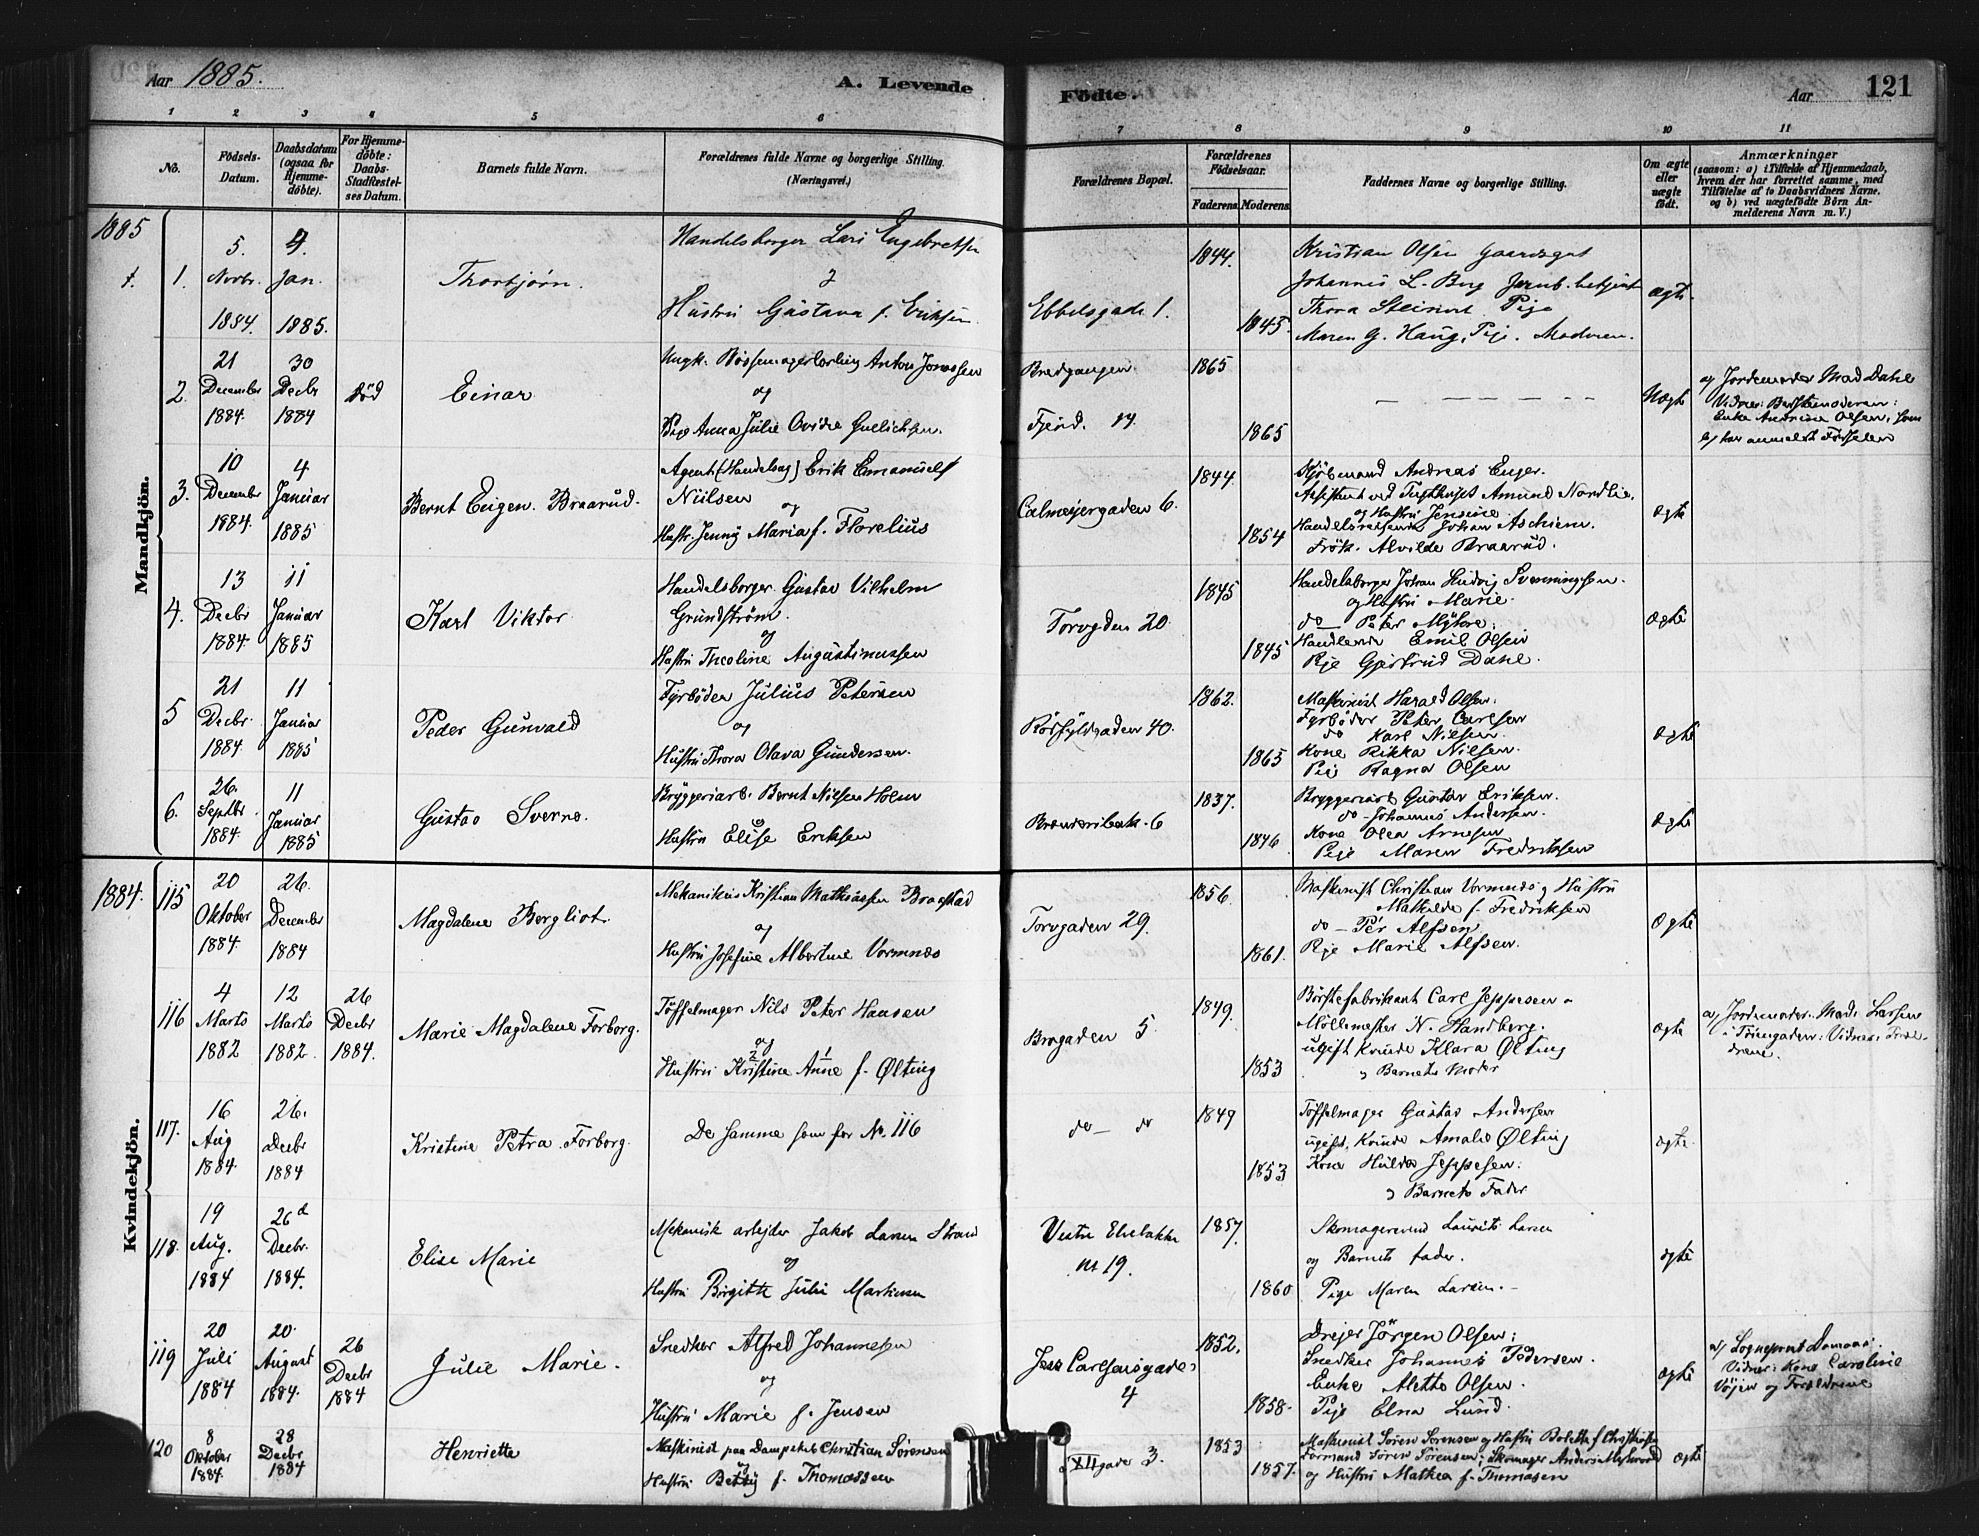 Aar 1885.
A. Levende
Födte.
Aar
121
1 2 3 4 5 6 7 8 9 10 11
No.
Födsels-Datum.
Daabsdatum (ogsaa for Hjemme-döbte).
For Hjemme-döbte: Daabs-Stadfæstel-ses Datum.
Barnets fulde Navn.
Forældrenes fulde Navne og borgerlige Stilling.
(Næringsvei.)
Forældrenes Bopæl.
Forældrenes Födselsaar.
Faderens. Moderens.
Faddernes Navne og borgerlige Stilling.
Om ægte eller uægte födt.
Anmærkninger
(saasom: a) i Tilfælde af Hjemmedaab, hvem der har forrettet samme, med Tilföielse af to Daabsvidners Navne, og b) ved uægtefödte Börn An-melderens Navn m. V.)
Mandkjön.
1885
1. 5. Novbr. 1884. 4. Jan. 1885.
Thorbjørn.
Handelsborger Lars Engebretsen
Hustru Gustava f. Eriksen
Ebbelsgade 1.
1844. 1845.
Kristian Olsen Gaardsgut
Johannes L. Berg Jernb. betjent
Thora Steinert Pige
Maren G. Haug, Pige. Moderen.
ægte.
2. 21 December 1884. 30 Decbr 1884 Död
Einar
Ungk. Bössemagerlærling Anton Jonassen
og
Pige Anna Julie Ovidie Gulichsen.
Bredgangen
Fjerd. 14
1865 1865
Uægte
a) Jordemoder Mad Dahl
Enke Andrine Olsen, som
b) har anmeldt Fødselen
3. 10 December 1884. 4 Januar 1885
Bernt Eugen Braarud.
Agent (Handelsag) Erik Emanuel
Nielsen
og
Hustr. Jenny Maria f. Florelius
Calmeyergaden 6.
1844. 1854
Kjöbmand Andreas Enger.
Assistent ved Tugthuset Amund Nordlie,
og Hustru Jensine
Handelsreisende Johan Aschiem.
Frök. Alvilde Braarud.
ægte
4. 13 Decbr 1884. 11 Januar 1885
Karl Viktor
Handelsborger Gustav Vilhelm
Grundström
og
Hustru Theoline Augustinussen
Torvgden 20
1845 1845
Handelsborger Johan Ludvig Svenningsen.
og Hustru Marie.
do Peter Myhre.
Handlende Emil Olsen
Pige Gjertrud Dahl.
ægte
5 21 Decbr. 1884. 11 Januar 1885
Peder Gunvald
Fyrböder Julius Petersen
og
Hustru Thora Olava Gundersen.
Rörfyldgaden 40.
1862. 1865
Maskinist Harald Olsen.
Fyrböder Peter Carlsen
do Karl Nilsen.
Kone Rikka Nilsen.
Pige Ragna Olsen
ægte
6. 26. Septbr. 1884 11 Januar 1885
Gustav Sverre.
Bryggeriarb. Bernt Nilsen Holm
og
Hustru Elise Eriksen
6
1837. 1846
Bryggeriarb Gustav Eriksen.
do - Johannes Andersen.
Kone Olea Arnesen
Pige Maren Fredriksen
ægte
Kvindekjön.
1884.
115 20 Oktober 1884. 26. December 1884
Magdalene Bergliot.
Mekanikus Kristian Mathiassen Braastad
og
Hustru Josefine Albertine Vormnæs
Torvgaden 29.
1856. 1861.
Maskinist Christian Vormnæs og Hustru
Mathilde f. Fredriksen
do - Pér Alfsen
Pige Marie Alfsen.
ægte
116 4 Marts 1882 12 Marts 1882. 26 Decbr 1884.
Marie Magdalene Forborg.
Töffelmager Nils Peter Hansen
og
2 1
Hustru Kristine Anne f. Ølting
Brogaden 5.
1849. 1853
Börstefabrikant Carl Jeppesen
Möllemester N. Handberg.
ugift Kvinde Klara Ølting
og Barnets Moder
ægte
a) Jordemoder Mad. Larsen
117. 16 Aug 1884. 26. Decbr 1884
Kristine Petra Forborg.
De samme som for No. 116
do - do
1849 1853
Töffelmager Gustav Andersen
ugift. Kvinde Amalie Ølting
Kone Hulda Jeppesen.
og Barnets Fader
ægte.
118. 19 Aug. 1884 26 d Decbr. 1884.
Elise Marie
Mekanisk arbejder Jakob Larsen Strand
og
Hustru Birgitte Julie Martinsen
Vestre Elvebakke
nr 19.
1857. 1860
Skomagersvend Laurits Larsen
og Barnets fader.
Pige Maren Larsen. -
ægte
119 20 Juli 1884 20. August 1884. 26 Decbr 1884
Julie Marie.
Snedker Alfred Johannesen
og
Hustru Marie f. Jensen
Jess Carlsensgade
4
1852. 1858.
Drejer Jörgen Olsen;
Snedker Johannes Pedersen.
Enke Aletta Olsen.
Pige Elna Lund.
ægte
a) Sogneprest
Vidner: Kone Caroline
Vöjen og Forældrene
120 8 Oktober 1884. 28 Decbr 1884
Henriette
Maskinist paa Dampskib Christian Sörensen
og
Hustru Betty f. Thomassen
XII gade 3.
1853 1857.
Maskinist Sören Sörensen og Hustru Bolette f. Christensen
Formand Sören Sörensen; Skomager Anders
og Hustru Mathea f. Thomasen
ægte